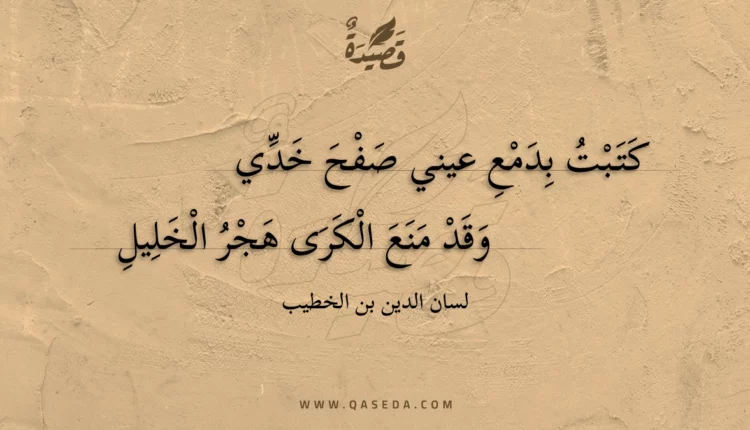 قَصِيدَةٌ
كَتَبْتُ بِدَمْعِ عيني صَفْحَ خَدِّي
وَقَدْ مَنَعَ الْكَرَى هَجْرُ الْخَلِيلِ
لسان الدين بن الخطيب
WWW.QASEDA.COM